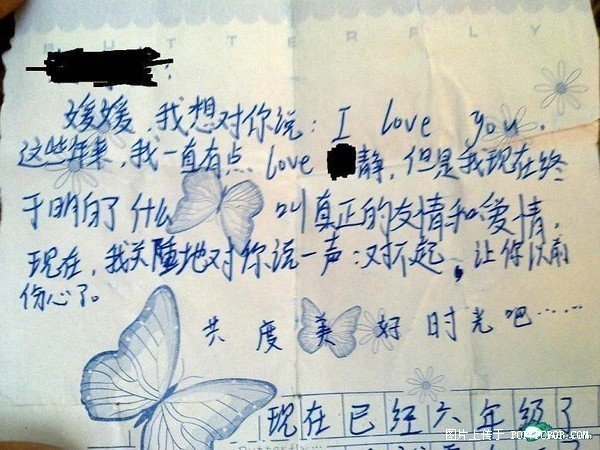 BUTTERFLY
媛媛,我想对你说:I love you.
这些年来,我一直有点 love 静,但是我现在终
于明白了什么叫真正的友情和爱情,
现在,我关隆地对你说一声:对不起,让你以前
伤心了。
共度美好时光吧……
现在已经六年级了
Butterfly...